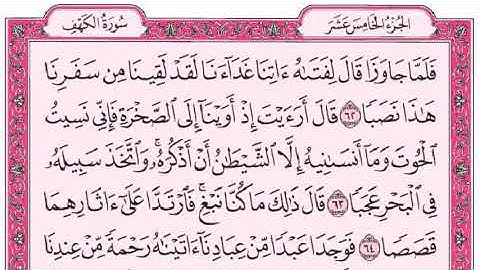 الجزء الخامس عشر
سورة الكهف
فَلَمَّا جَاوَزَا قَالَ لِفَتَىٰهُ ءَاتِنَا غَدَآءَنَا لَقَدْ لَقِينَا مِن سَفَرِنَا
هَٰذَا نَصَبًا ٦٢ قَالَ أَرَءَيْتَ إِذْ أَوَيْنَآ إِلَى ٱلصَّخْرَةِ فَإِنِّى نَسِيتُ
ٱلْحُوتَ وَمَآ أَنسَىٰنِيهُ إِلَّا ٱلشَّيْطَٰنُ أَنْ أَذْكُرَهُۥ ۚ وَٱتَّخَذَ سَبِيلَهُۥ
فِى ٱلْبَحْرِ عَجَبًا ٦٣ قَالَ ذَٰلِكَ مَا كُنَّا نَبْغِ ۚ فَٱرْتَدَّا عَلَىٰٓ ءَاثَارِهِمَا
قَصَصًا ٦٤ فَوَجَدَا عَبْدًا مِّنْ عِبَادِنَآ ءَاتَيْنَٰهُ رَحْمَةً مِّنْ عِندِنَا